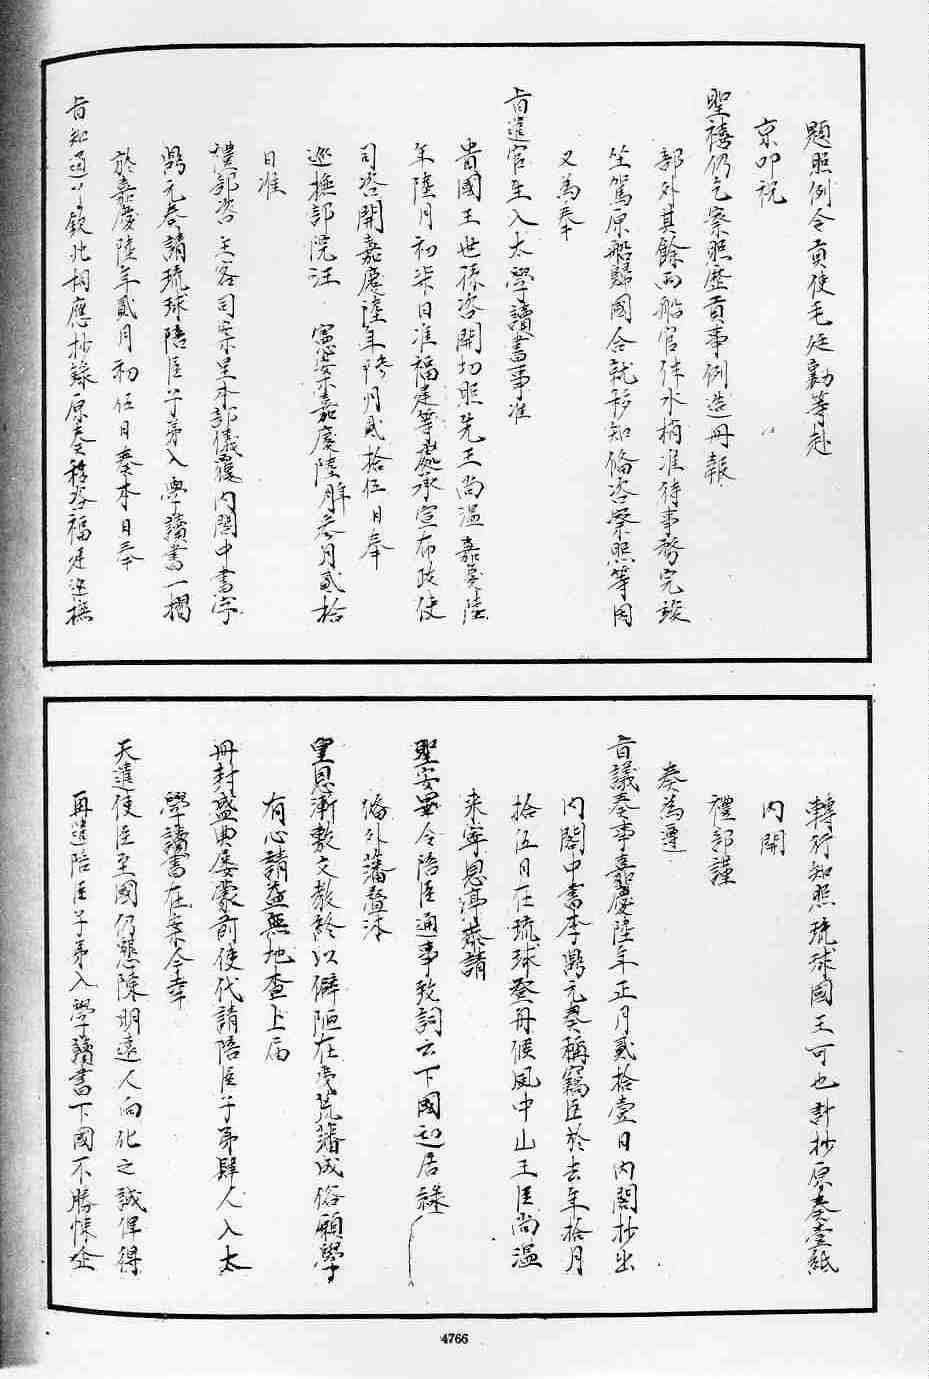 題照例令貢使毛廷勷等赴
京叩祝
聖禧仍乞察照歷貢事例造冊報
部外其餘兩船官伴水梢准待事務完竣
坐駕原船歸國合就移知備咨察照等因
又為奉
旨遣官生入太學讀書事准
貴國王世孫咨開切照先王尚溫嘉慶陸
年陸月初柒日准福建等處承宣布政使
司咨開嘉慶陸年月貳拾伍日奉
巡撫部院汪 憲案嘉慶陸年參月貳拾
日准
禮部咨主客司案呈本部儀覆內閣中書李
鼎元奏請琉球陪臣子弟入學讀書一摺
於嘉慶陸年貳月初伍日奏本日奉
旨知道了欽此相應抄錄原奏移咨福建巡撫
轉行知照琉球國王可也計抄原奏壹紙
內開
禮部謹
奏為遵
旨議奏事嘉慶陸年正月貳拾壹日內閣抄出
內閣中書李鼎元奏稱竊臣於去年拾月
拾伍日在琉球登舟候風中山王臣尚溫
來寧恩亭恭請
聖安畢令陪臣通事致詞云下國起居謹
備外藩鼇沐
皇恩漸敷文教終以僻陋在荒藩成俗願學
有心請益無地查上屆
冊封盛典屢蒙前使代請陪臣子弟肆人入太
學讀書在案今幸
天遣使臣至國仍懇陳明遠人向化之誠俾得
再遣陪臣子弟入學讀書下國不勝悚企
4766